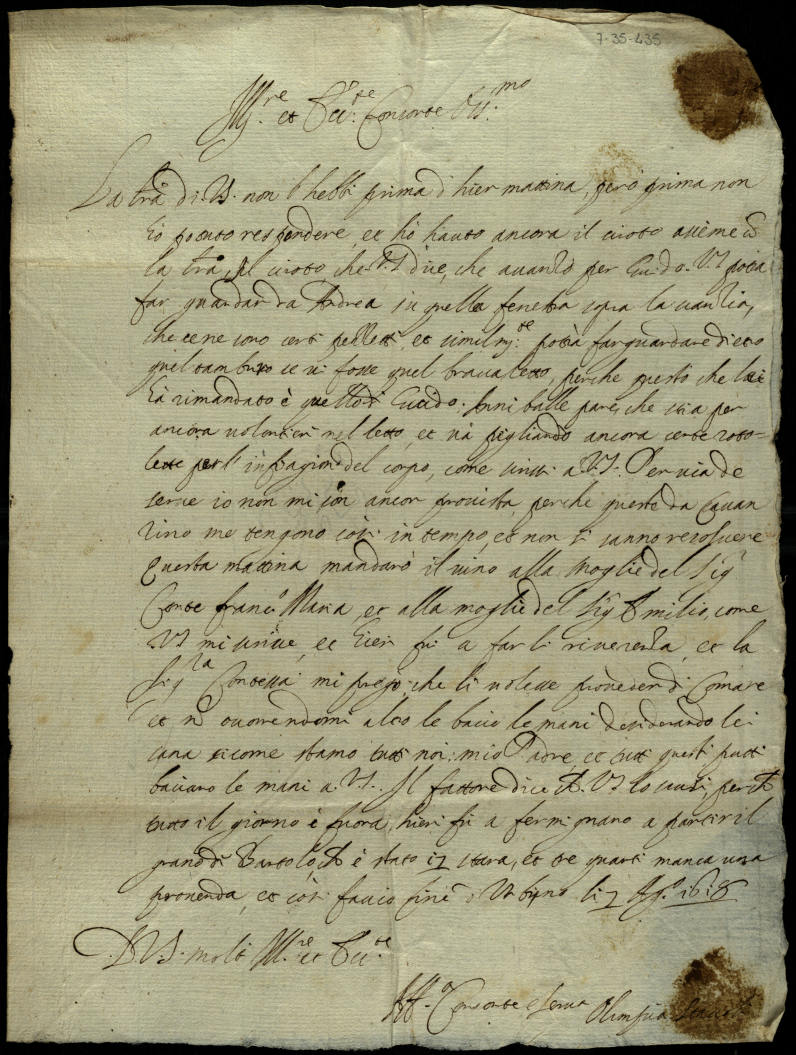 7-35-435
Ill.re et Ecc.te Consorte oss.mo
La lra di VS. non l'hebbi prima d'hier mattina, però prima non
hò potuto respondere, et hò hauto ancora il
la lra, il che V.S dice, che auanzò per Guido. V.S potria
far guardar da Andrea in quella fenestra sopra la
che ce ne sono certi pezzetti, et simil.te potria far guardare dietro
quel tamburo se ui fosse quel braccialetto, perche questo che lei
hà rimandato è quello di Guido. Anniballe pare, che stia per
ancora uolontieri nel letto, et uà pigliando ancora certe roto-
lette per l' del corpo, come scrissi a V.S. Per uia de
serue io non mi son ancor prouista perche queste da Cauan
zino me tengono così in tempo, et non si sanno resoluere
Questa mattina mandarò il uino alla Moglie del Sig.r
Conte Franc.o Maria, et alla moglie del Sig. Emilio, come
VS mi scriue, et hieri fui a farli riuerenza, et la
Sig.ra Contessa mi pregò, che li uolesse proueder di Comare
et nō occorrendomi altro le bacio le mani desiderandole
sana sicome stamo tutti noi: mio Padre, et tutti questi putti
baciano le mani a V.S. Il fattore dice ch. VS lo scusi, perch
tutto il giorno è fuora, hieri fù a fermignano a partir il
grano di Bartolo, ch è stato 17 stara, et tre quarti manca una
prouenda, et così faccio fine d'Urbino li 7 Ag.o 1618
D. V.S. molt' Ill.re et Ecc.te
Aff.a Consorte e serua Olimpia